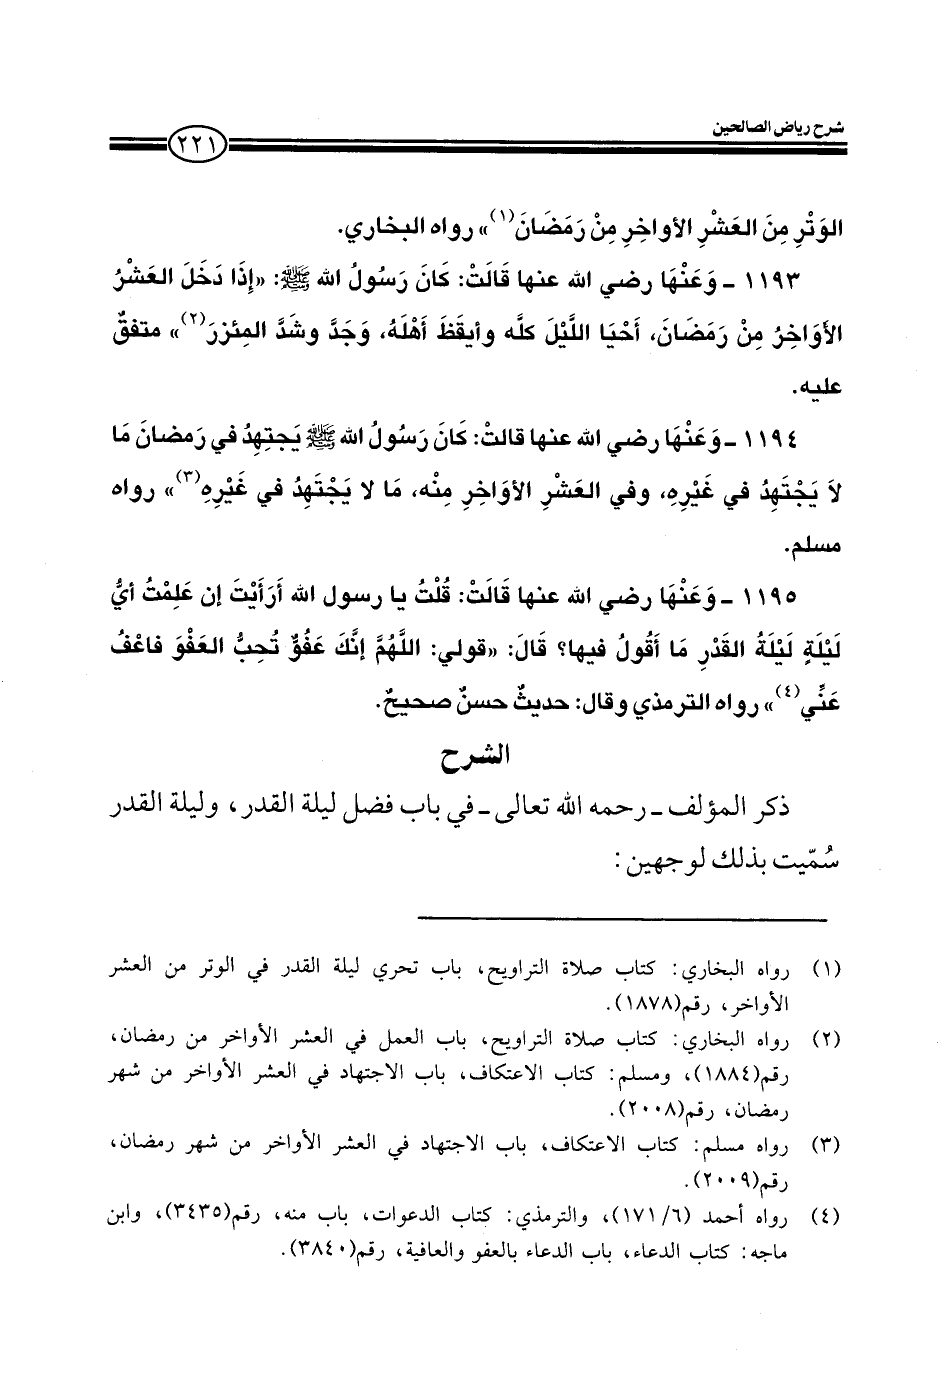 شرح رياض الصالحين
٢٢١
الوَتْرِ مِنَ العَشْرِ الأواخِرِ مِنْ رَمَضَانَ(١)» رواه البخاري.
١١٩٣ ـ وَعَنْهَا رضي الله عنها قَالَتْ: كَانَ رَسُولُ الله ﷺ: «إِذَا دَخَلَ العَشْرُ
الأَوَاخِرُ مِنْ رَمَضَانَ، أَحْيَا اللَّيْلَ كلَّه وأيقَظَ أَهْلَهُ، وَجَدَّ وشَدَّ المِئزرَ(٢)» متفقٌ
عليه.
١١٩٤ ـ وَعَنْهَا رضي الله عنها قالتْ: كَانَ رَسُولُ الله ﷺ يَجتهِدُ في رَمضانَ مَا
لاَ يَجْتَهِدُ في غَيْرِهِ، وفي العَشْرِ الأوَاخِرِ مِنْه، مَا لا يَجْتَهِدُ في غَيْرِهِ(٣)» رواه
مسلم.
١١٩٥ ـ وَعَنْهَا رضي الله عنها قَالَتْ: قُلْتُ يا رسول الله أَرَأَيْتَ إن عَلِمْتُ أيُّ
لَيْلَةٍ لَيْلَةُ القَدْرِ مَا أَقُولُ فيها؟ قَالَ: «قولي: اللَّهُمَّ إنَّكَ عَفُوٌّ تُحِبُّ العَفْوَ فاعْفُ
عَنِّي(٤)» رواه الترمذي وقال: حديثٌ حسنٌ صحيحٌ.
الشرح
ذكر المؤلف ـ رحمه الله تعالى ـ في باب فضل ليلة القدر، وليلة القدر
سُمّيت بذلك لوجهين:
(١) رواه البخاري: كتاب صلاة التراويح، باب تحري ليلة القدر في الوتر من العشر
الأواخر، رقم(١٨٧٨).
(٢) رواه البخاري: كتاب صلاة التراويح، باب العمل في العشر الأواخر من رمضان،
رقم(١٨٨٤)، ومسلم: كتاب الاعتكاف، باب الاجتهاد في العشر الأواخر من شهر
رمضان، رقم(٢٠٠٨).
(٣) رواه مسلم: كتاب الاعتكاف، باب الاجتهاد في العشر الأواخر من شهر رمضان،
رقم(٢٠٠٩).
(٤) رواه أحمد (٦/ ١٧١)، والترمذي: كتاب الدعوات، باب منه، رقم(٣٤٣٥)، وابن
ماجه: كتاب الدعاء، باب الدعاء بالعفو والعافية، رقم(٣٨٤٠).